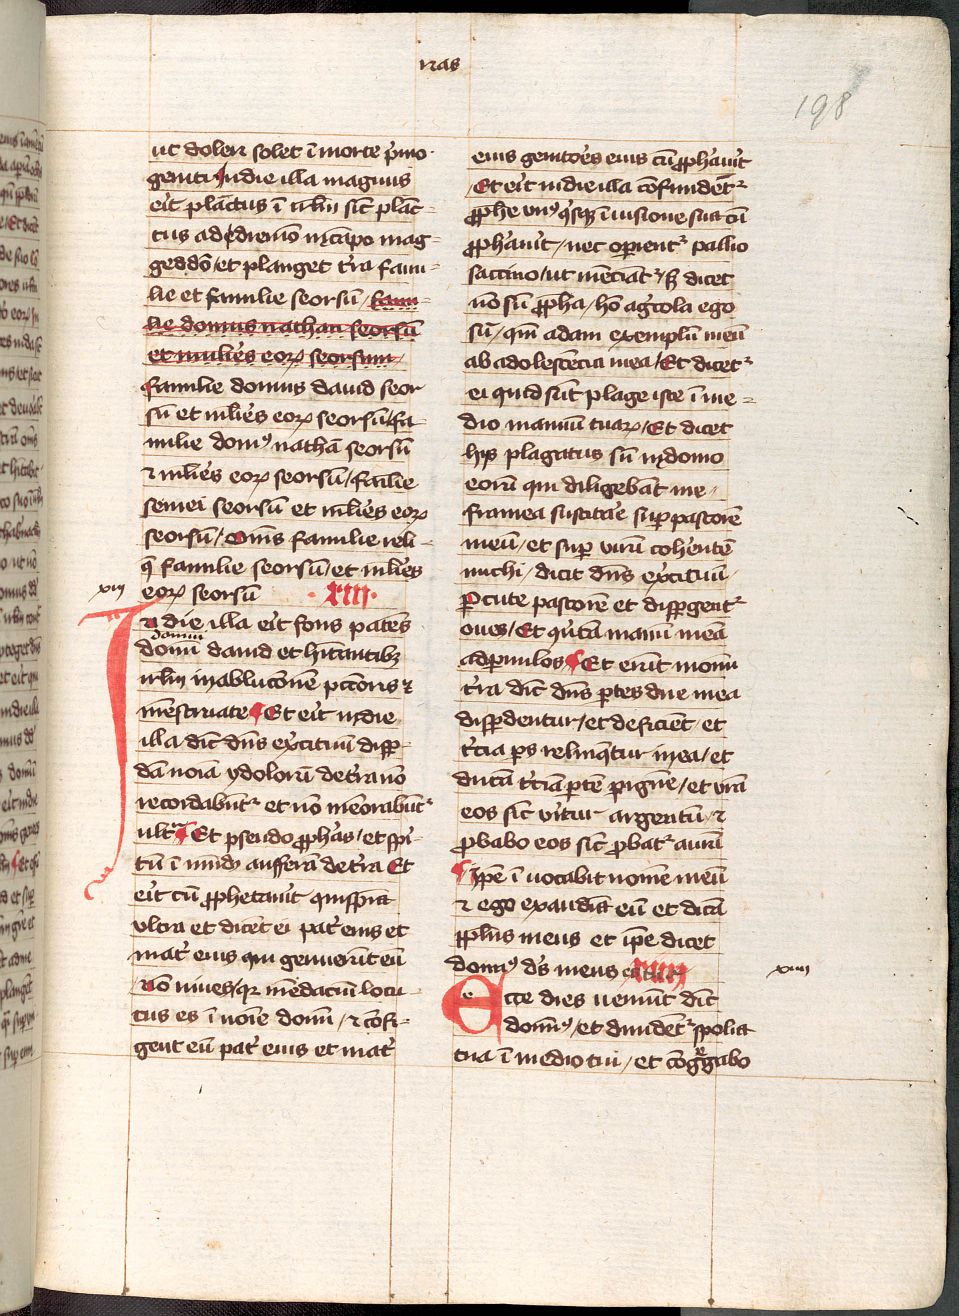 ras
198
ut doleri solet ī morte p̄mo
geniti In die illa magnus
eīt planctus ī irl̄m sic̄ planc̄
tus adedremō in cāpo mag-
geddō / et planget t̄ra fami-
lie et familie seorsū / fami-
lie domus nathan seorsū
et mulie͛s eoꝝ seorsum /
familie domus dauid seor
sū et ml̄ie͛s eoꝝ seorsū / fa-
milie domꝰ nathā seorsū
⁊ ml̄ie͛s eoꝝ seorsū / familie
semei seorsū et ml̄ie͛s eoꝝ
seorsū / Om̄s familie reli-
q̄ familie seorsū / et ml̄ie͛s
eoꝝ seorsū XIII
xiij
In die illa eīt fons patēs
domui
domū dauid et hītantibꝫ
irl̄m in ablucionē pctōris ⁊
mēstruate Et eīt in die
illa dic̄t dn̄s ex͛cituū disꝑ-
dā noīa ydolorū de t̄ra nō
recordabūt᷑ et nō mēorabūt᷑
ult͛ Et pseudo ꝓphās / et spī-
tū ī mūdū aufferā de t̄ra Et
eīt cū ꝓphetauīt quispiā
ultra et dicēt ei pat͛ eius et
mat͛ eius qui genuerūt eū
Nō uiues / qr mēdaciū locu-
tus es ī noīe domī / ⁊ cōfi-
gent eū pat͛ eius et mat͛
eius genitōes eius cū ꝓphauīt
Et eīt in die illa cōfundēt᷑
ꝓphe vnꝰ q̄sqꝫ ī uisione sua cū
ꝓphauīt / nec oꝑient᷑ pallio
saccino / ut mēciāt᷑ / sꝫ dicet
nō sū ꝓpha / hō ag͛cola ego
sū / qm̄ adam exemplū meū
ab adolescēcia mea / Et dicet᷑
ei quid sūt plage iste ī me-
dio manuū tuaꝝ / Et dicet
hijs plagatus sū in domo
eorū qui diligebāt me /
framea suscitāe suꝑ pastorē
meū / et suꝑ virū coh͛entē
michi / dicit dn̄s ex͛cituū /
ꝑcute pastorē et disꝑgent᷑
oues / Et q͛tā manū meā
ad ꝑuulos Et erūt ī omni
t̄ra dic̄t dn̄s ꝑtes due ī ea
disꝑdentur / et deficiēt / et
t͛cia ꝑs relinq̄tur ī nea / et
ducā t͛ciā ꝑtē ꝑ ignē / et urā
eos sic̄ vritur argentū / ⁊
ꝓbabo eos sic̄ ꝓbat᷑ aurū
Ip̄e ī uocabit nomē meū
⁊ ego exaudiā eū et dicā
ppl̄us meus et ip̄e dicet
domꝰ d̄s meus XIIII
xiiij
Ecce dies ueniūt dic̄t
domꝰ / et diuidēt᷑ spolia
tua ī medio tui / et cōgregabo